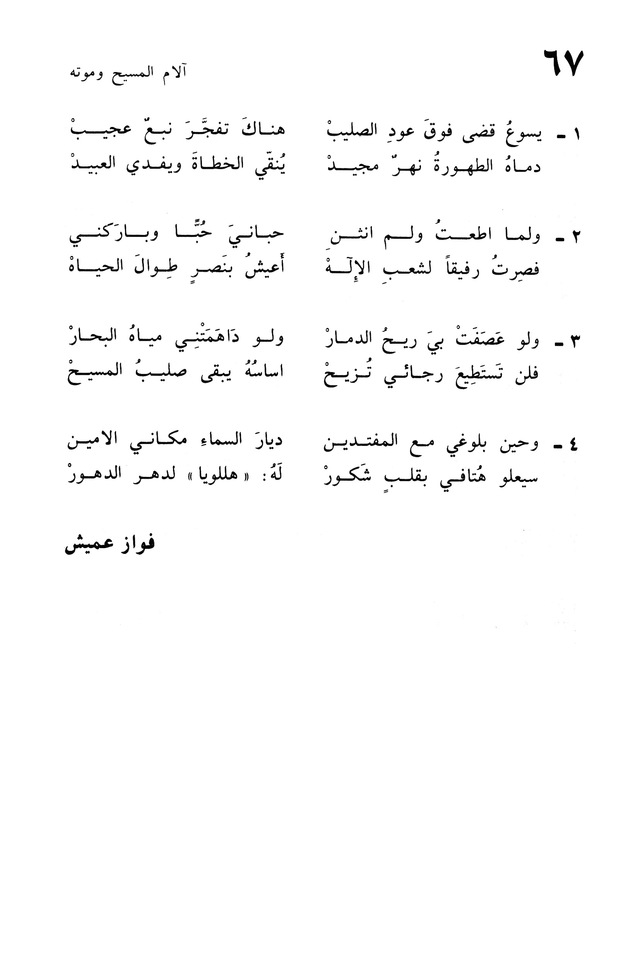 ٦٧
آلام المسيح وموته
١ ـ يسوعُ قضى فوقَ عودِ الصليبْ هناكَ تفجَّرَ نبعٌ عجيبْ
دماهُ الطهورةُ نهرٌ مجيدْ يُنقّي الخطاةَ ويفدي العبيدْ
٢ ـ ولما اطعتُ ولم انثنِ حبانيَ حُبًّا وباركني
فصِرتُ رفيقاً لشعبِ الإِلَهْ أَعيشُ بنَصرٍ طِوالَ الحياهْ
٣ ـ ولو عَصَفَتْ بيَ ريحُ الدمارْ ولو دَاهَمَتْنِي مياهُ البحارْ
فلن تَستَطِيعَ رجائي تُزيحْ اساسُهُ يبقى صليبُ المسيحْ
٤ ـ وحين بلوغي مع المفتدين ديارَ السماءِ مكاني الامين
سيعلو هُتافي بقلبٍ شَكورْ لَهُ: «هللويا» لدهر الدهورْ
فواز عميش